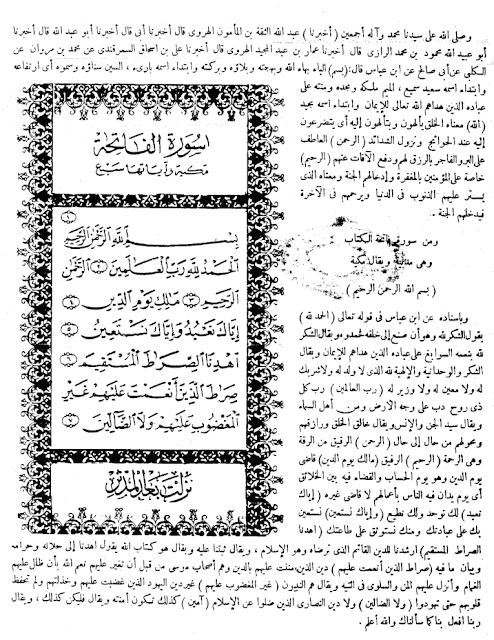 وصلى الله على سيدنا محمد وآله أجمعين (أخبرنا) عبد الله الثقة بن المأمون الهروى قال أخبرنا أبى قال أخبرنا أبو عبد الله قال أخبرنا
أبو عبيد الله محمود بن محمد الرازى قال أخبرنا عمار بن عبد المجيد الهروى قال أخبرنا على بن اسحاق السمرقندى عن محمد بن مروان عن
الكلبى عن أبى صالح عن ابن عباس قال: (بسم) الباء بهاء الله وبهجته وبلاؤه وبركته وابتداء اسمه بارىء، السين سناؤه وسموه أى ارتفاعه
وابتداء اسمه سميع، الميم ملكه ومجده ومنته على
عباده الذين هداهم الله تعالى للإيمان وابتداء اسمه مجيد
(الله) معناه الخلق يألهون ويتألهون إليه أى يتضرعون
إليه عند الحوائج ونزول الشدائد (الرحمن) العاطف
على البر والفاجر بالرزق لهم ودفع الآفات عنهم (الرحيم)
خاصة على المؤمنين بالمغفرة وإدخالهم الجنة ومعناه الذى
يستر عليهم الذنوب فى الدنيا ويرحمهم فى الآخرة
فيدخلهم الجنة.
ومن سورة فاتحة الكتاب
وهى مدنية ويقال مكية
(بسم الله الرحمن الرحيم)
وبإسناده عن ابن عباس فى قوله تعالى (الحمد لله)
يقول الشكر لله وهو أن صنع إلى خلقه فحمدوه ويقال الشكر
لله بنعمه السوابغ على عباده الذين هداهم للإيمان ويقال
الشكر والوحدانية والإلهية لله الذى لا ولد له ولا شريك
له ولا معين له ولا وزير له (رب العالمين) رب كل
ذى روح دب على وجه الارض ومن أهل السماء
ويقال سيد الجن والإنس ويقال خالق الخلق ورازقهم
ومحولهم من حال إلى حال (الرحمن) الرقيق من الرقة
وهى الرحمة (الرحيم) الرفيق (مالك يوم الدين) قاضى
يوم الدين وهو يوم الحساب والقضاء فيه بين الخلائق
أى يوم يدان فيه الناس بأعمالهم لا قاضى غيره (إياك
نعبد) لك نوحد ولك نطيع (وإياك نستعين) نستعين
بك على عبادتك ومنك نستوثق على طاعتك (اهدنا
الصراط المستقيم) ارشدنا للدين القائم الذى ترضاه وهو الإسلام، ويقال ثبتنا عليه ويقال هو كتاب الله يقول اهدنا إلى حلاله وحرامه
وبيان ما فيه (صراط الذين أنعمت عليهم) دين الذين مننت عليهم بالدين وهم أصحاب موسى من قبل أن تغير عليهم نعم الله بأن ظلل عليهم
الغمام وأنزل عليهم المن والسلوى فى التيه ويقال هم النبيون (غير المغضوب عليهم) غير دين اليهود الذين غضبت عليهم وخذلتهم ولم تحفظ
قلوبهم حتى تهودوا (ولا الضالين) ولا دين النصارى الذين ضلوا عن الإسلام (آمين) كذلك تكون أمنته ويقال فليكن كذلك، ويقال
ربنا افعل بنا كما سألناك والله أعلم.
سورة الفاتحة
مكية وآياتها سبع
بسم الله الرحمن الرحيم
الحمد لله رب العالمين الرحمن
الرحيم مالك يوم الدين
إياك نعبد وإياك نستعين
اهدنا الصراط المستقيم
صراط الذين أنعمت عليهم غير
المغضوب عليهم ولا الضالين
نزلت بعد المدثر